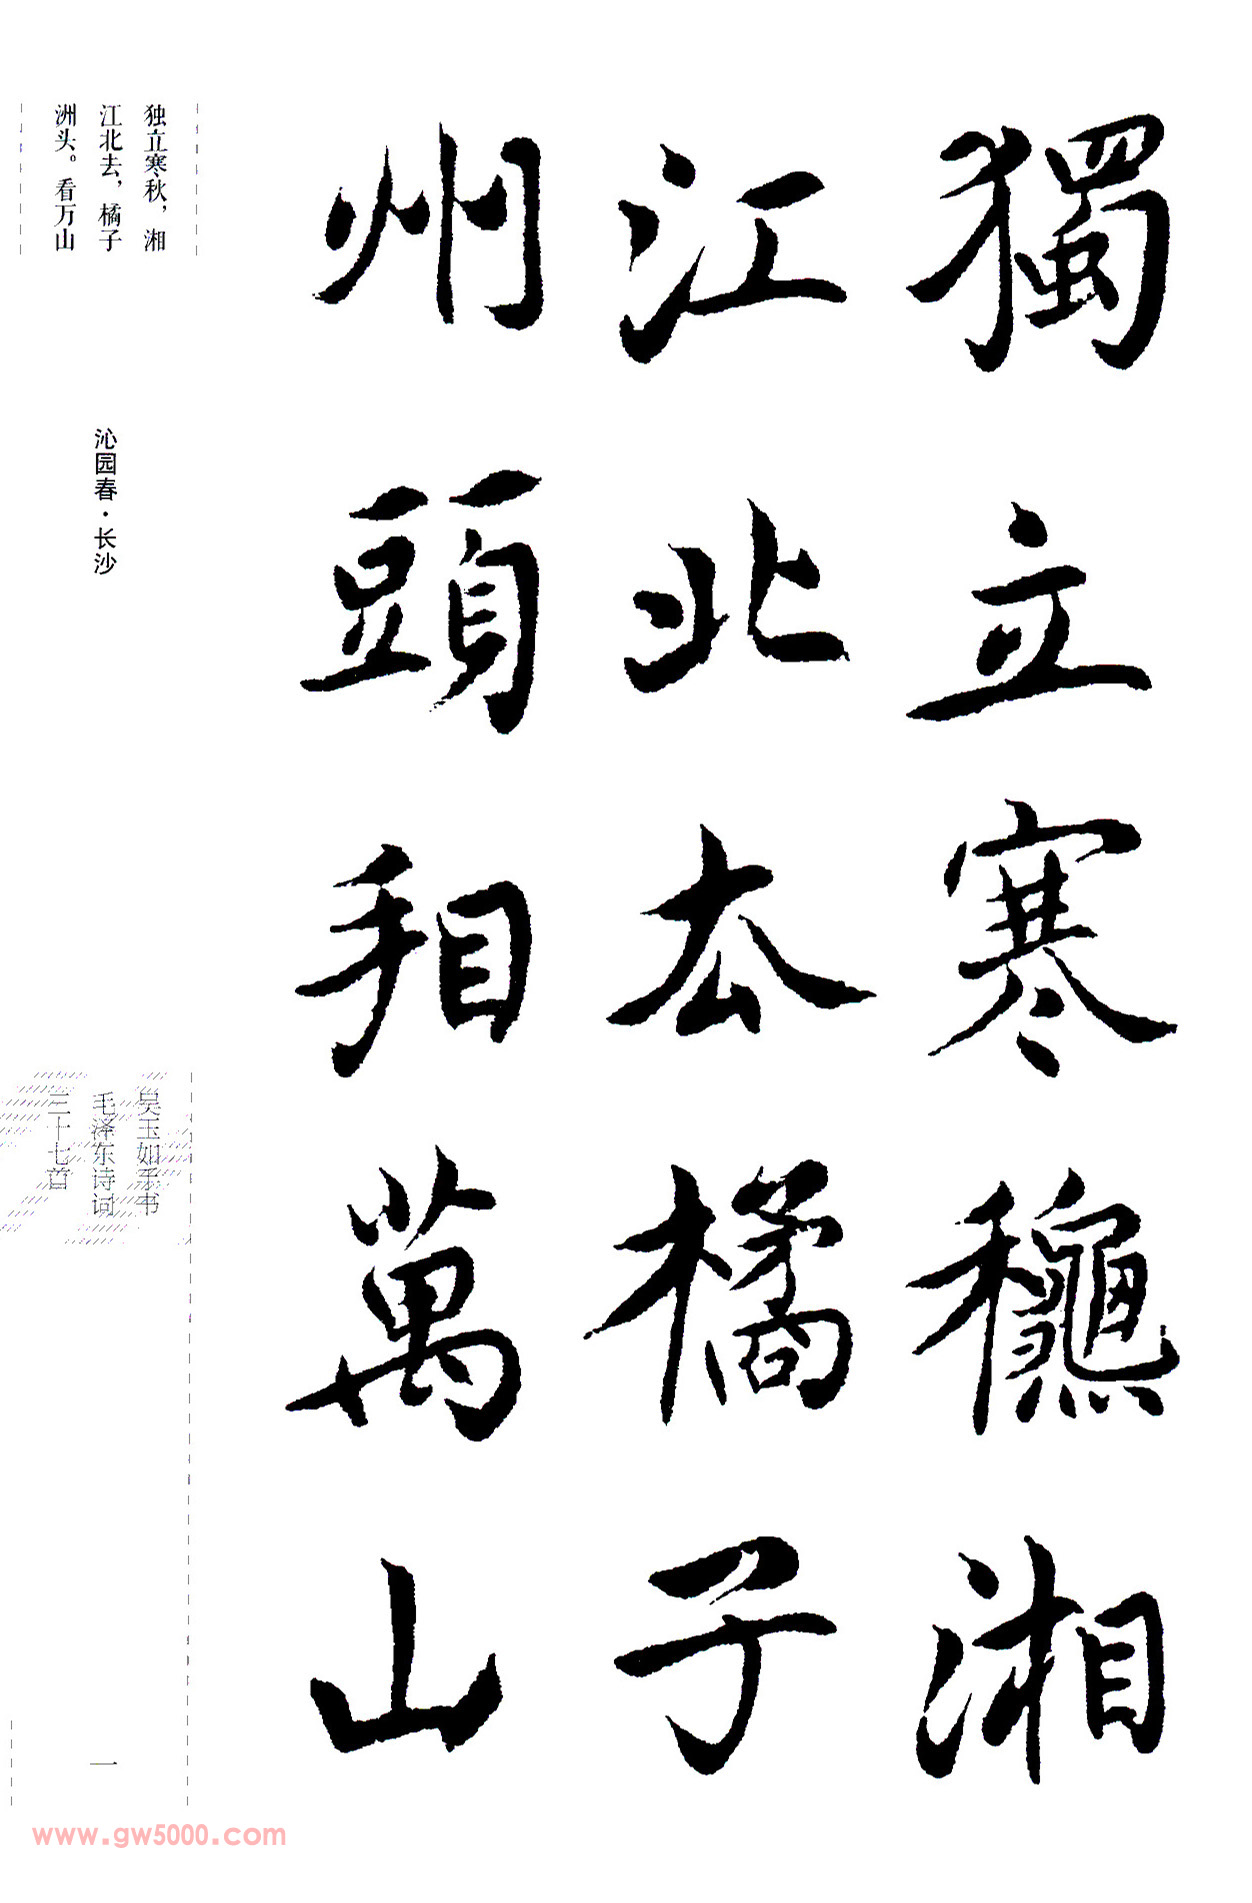 獨立寒龝湘
江北厺橘子
州頭看萬山
独立寒秋，湘
江北去，橘子
洲头。看万山
沁园春·长沙
吴玉如手书
毛泽东诗词
三十七首
一
www.gw5000.com